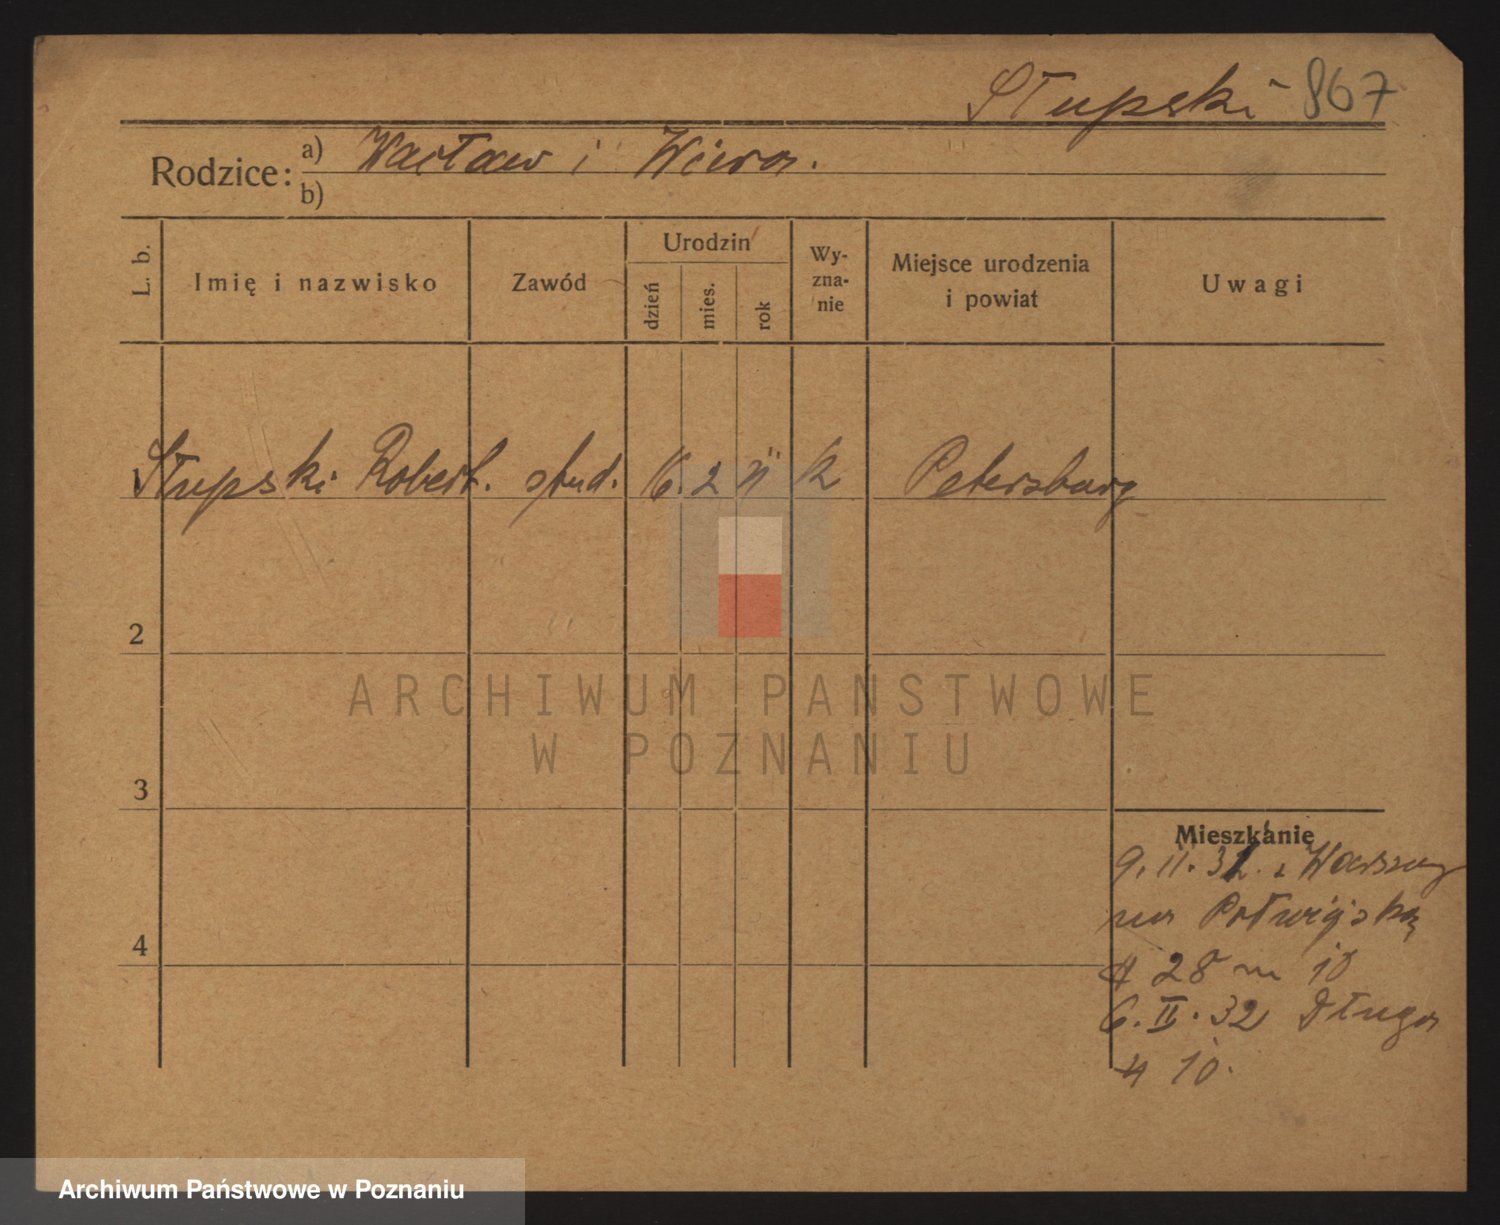 Słupski 867
Rodzice: a) Wacław i Wiera.
b)
L. b. Imię i nazwisko Zawód Urodzin dzień mies. rok Wyznanie Miejsce urodzenia i powiat Uwagi
Słupski Robert. stud. 16. 2 11 k Petersburg
2
ARCHIWUM PAŃSTWOWE
W POZNANIU
3
Mieszkanie
9. 11. 31. z Warszawy
na Półwiejską
28 m 10
4
6. II. 32 Długa
10.
Archiwum Państwowe w Poznaniu